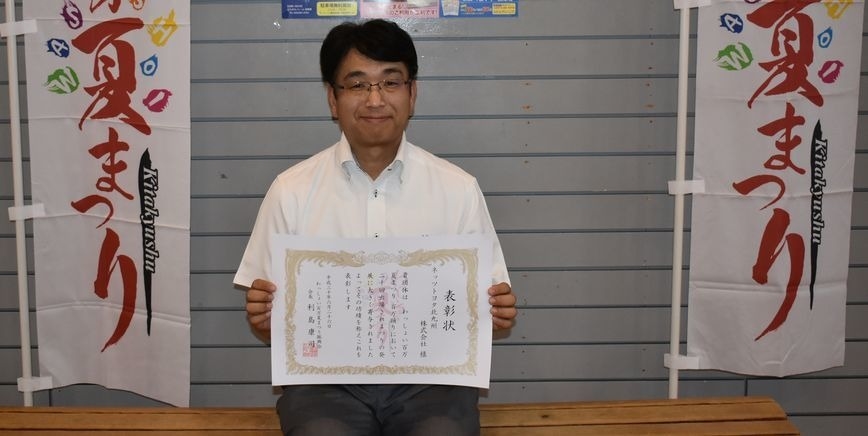 夏まつり
Kitakyushu
表彰状
ネッツトヨタ北九州
株式会社 様
貴団体は、わっしょい百万
夏まつり百万踊りにおいて
二十回出場されまつりの発
展に大きく寄与されました
よってその功績を称えこれを
表彰します
平成三十年六月二十六日
わっしょい百万夏まつり振興会
会長 利島康司
夏まつり
Kitakyushu